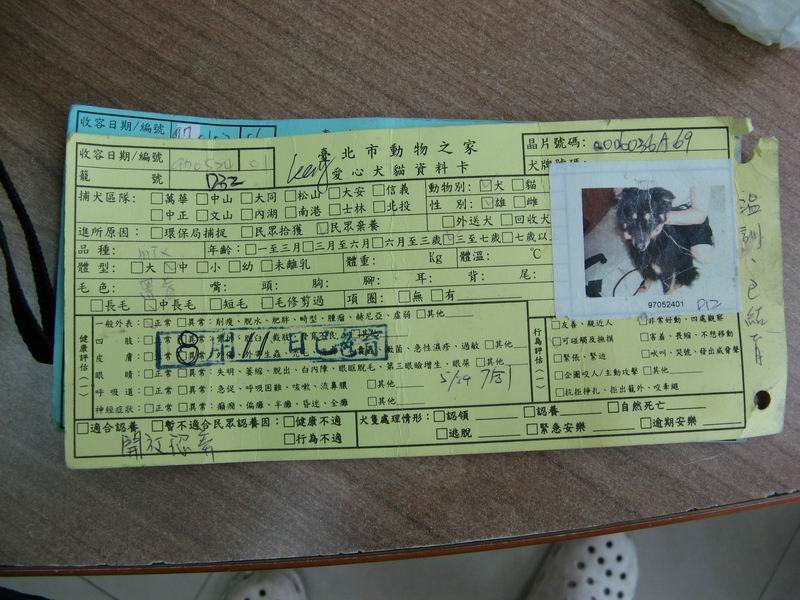 收容日期/編號
收容日期/編號 970524 01
籠 號 D32
臺北市動物之家
愛心犬貓資料卡
晶片號碼:
犬牌號碼:
捕犬區隊: □萬華 □中山 □大同 □松山 □大安 □信義
□中正 □文山 □內湖 □南港 □士林 □北投
動物別: ☑犬 □貓
性 別: ☑雄 □雌
進所原因: □環保局捕捉 □民眾拾獲 ☑民眾棄養 □外送犬 □回收犬
品 種: mix 年齡: □一至三月 □三月至六月 □六月至三歲 ☑三至七歲 □七歲以
體 型: □大 ☑中 □小 □幼 □未離乳 體重: Kg 體溫: ℃
毛 色: 嘴: 頭: 胸: 腳: 耳: 背: 尾:
□長毛 ☑中長毛 □短毛 □毛修剪過 項 圈: □無 □有
97052401
D32
溫馴、已結育
健康評估(一)
一般外表: ☑正常 □異常: 削瘦、脫水、肥胖、畸型、腫瘤、赫尼亞、虛弱 □其他
四 肢:
皮 膚: 黴菌、急性濕疹、過敏 □其他
眼 睛: □正常 □異常: 失明、萎縮、脫出、白內障、眼瞼脫毛、第三眼瞼增生、眼屎 □其他
呼 吸 道: □正常 □異常: 急促、呼吸困難、咳嗽、流鼻膿 □其他
神經症狀: □正常 □異常: 癲癇、偏癱、半癱、昏迷、全癱 □其他
8月
5/29
行為評估(二)
□友善、親近人 非常好動、四處觀察
□可碰觸及擁抱 □害羞、長縮、不想移動
□緊張、緊迫 □吠叫、哭號、發出威脅聲
□企圖咬人/主動攻擊 □其他
□抗拒掙扎、拒出籠外、咬牽繩
□適合認養 □暫不適合民眾認養因: □健康不適
□行為不適
開放認養
犬隻處理情形: □認領 □認養 □自然死亡
□逃脫 □緊急安樂 □逾期安樂